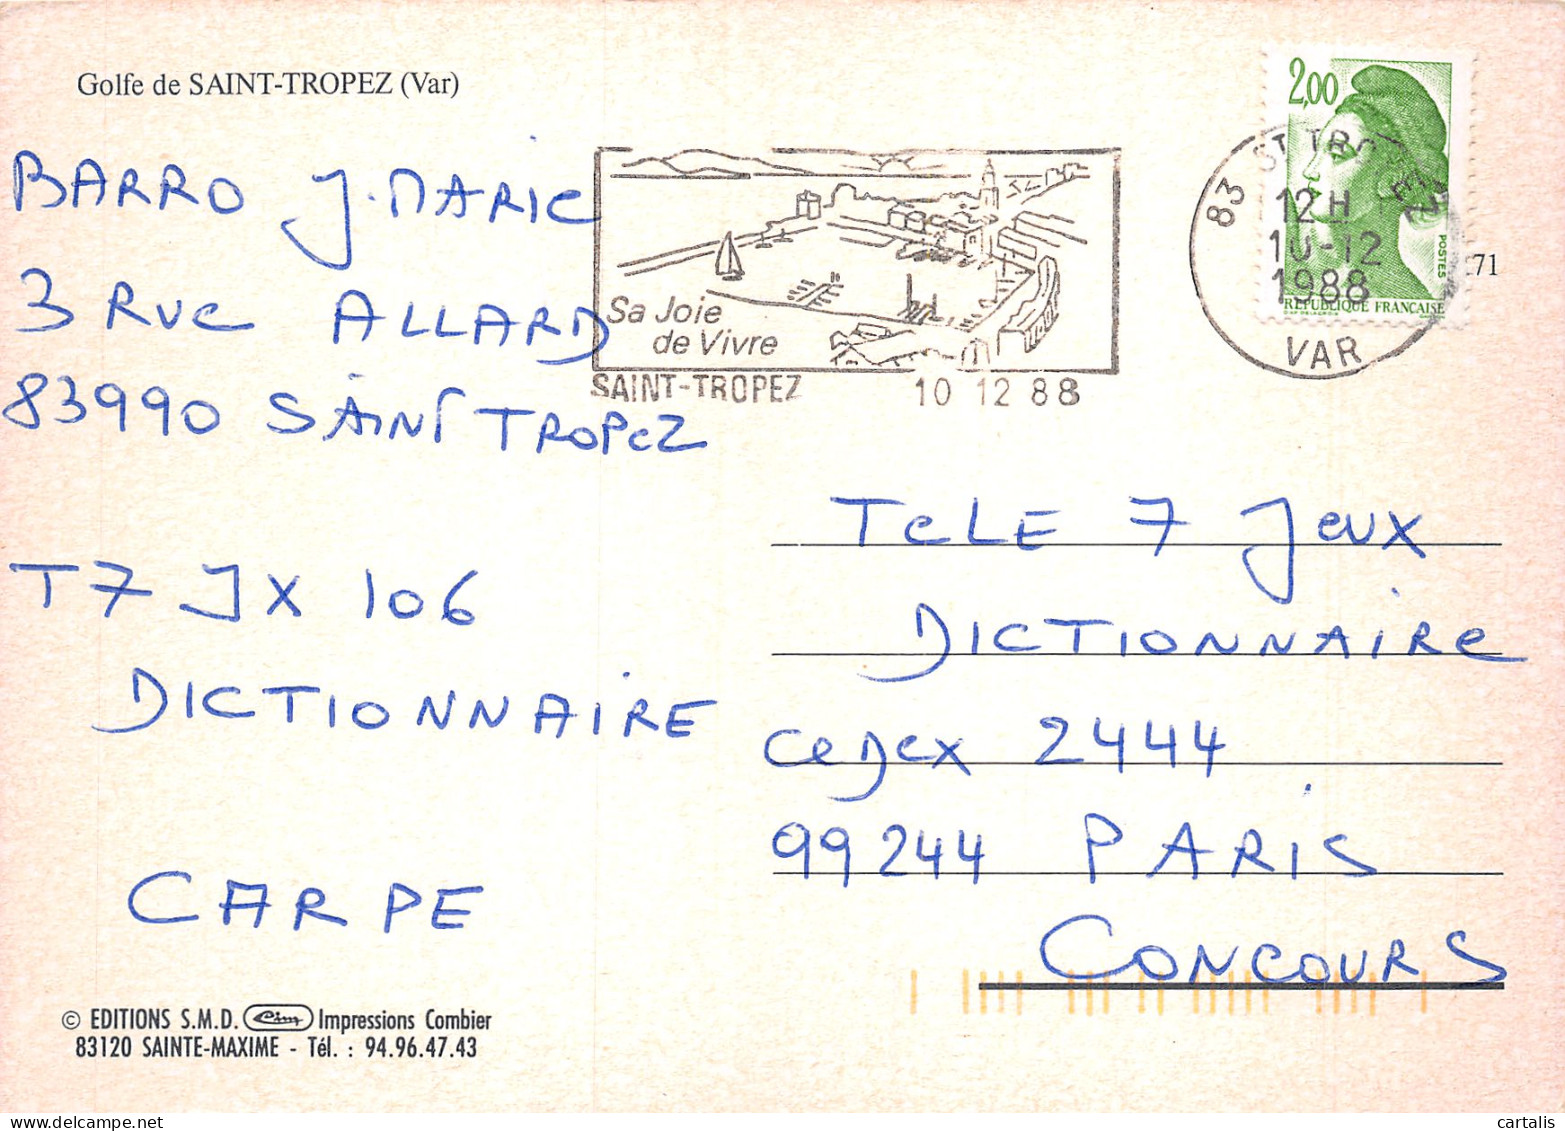 Golfe de SAINT-TROPEZ (Var)
BARRO J. MARIE
3 RUE ALLARD
83990 SAINT TROPEZ
T7 JX 106
DICTIONNAIRE
CARPE
© EDITIONS S.M.D. Cim Impressions Combier
83120 SAINTE-MAXIME - Tél. : 94.96.47.43
Sa Joie
de Vivre
SAINT-TROPEZ 10 12 88
2,00
POSTES
REPUBLIQUE FRANÇAISE
83 ST TROPEZ
12 H
10-12
1988
VAR
71
TELE 7 JEUX
DICTIONNAIRE
CEDEX 2444
99244 PARIS
CONCOURS
cartalis